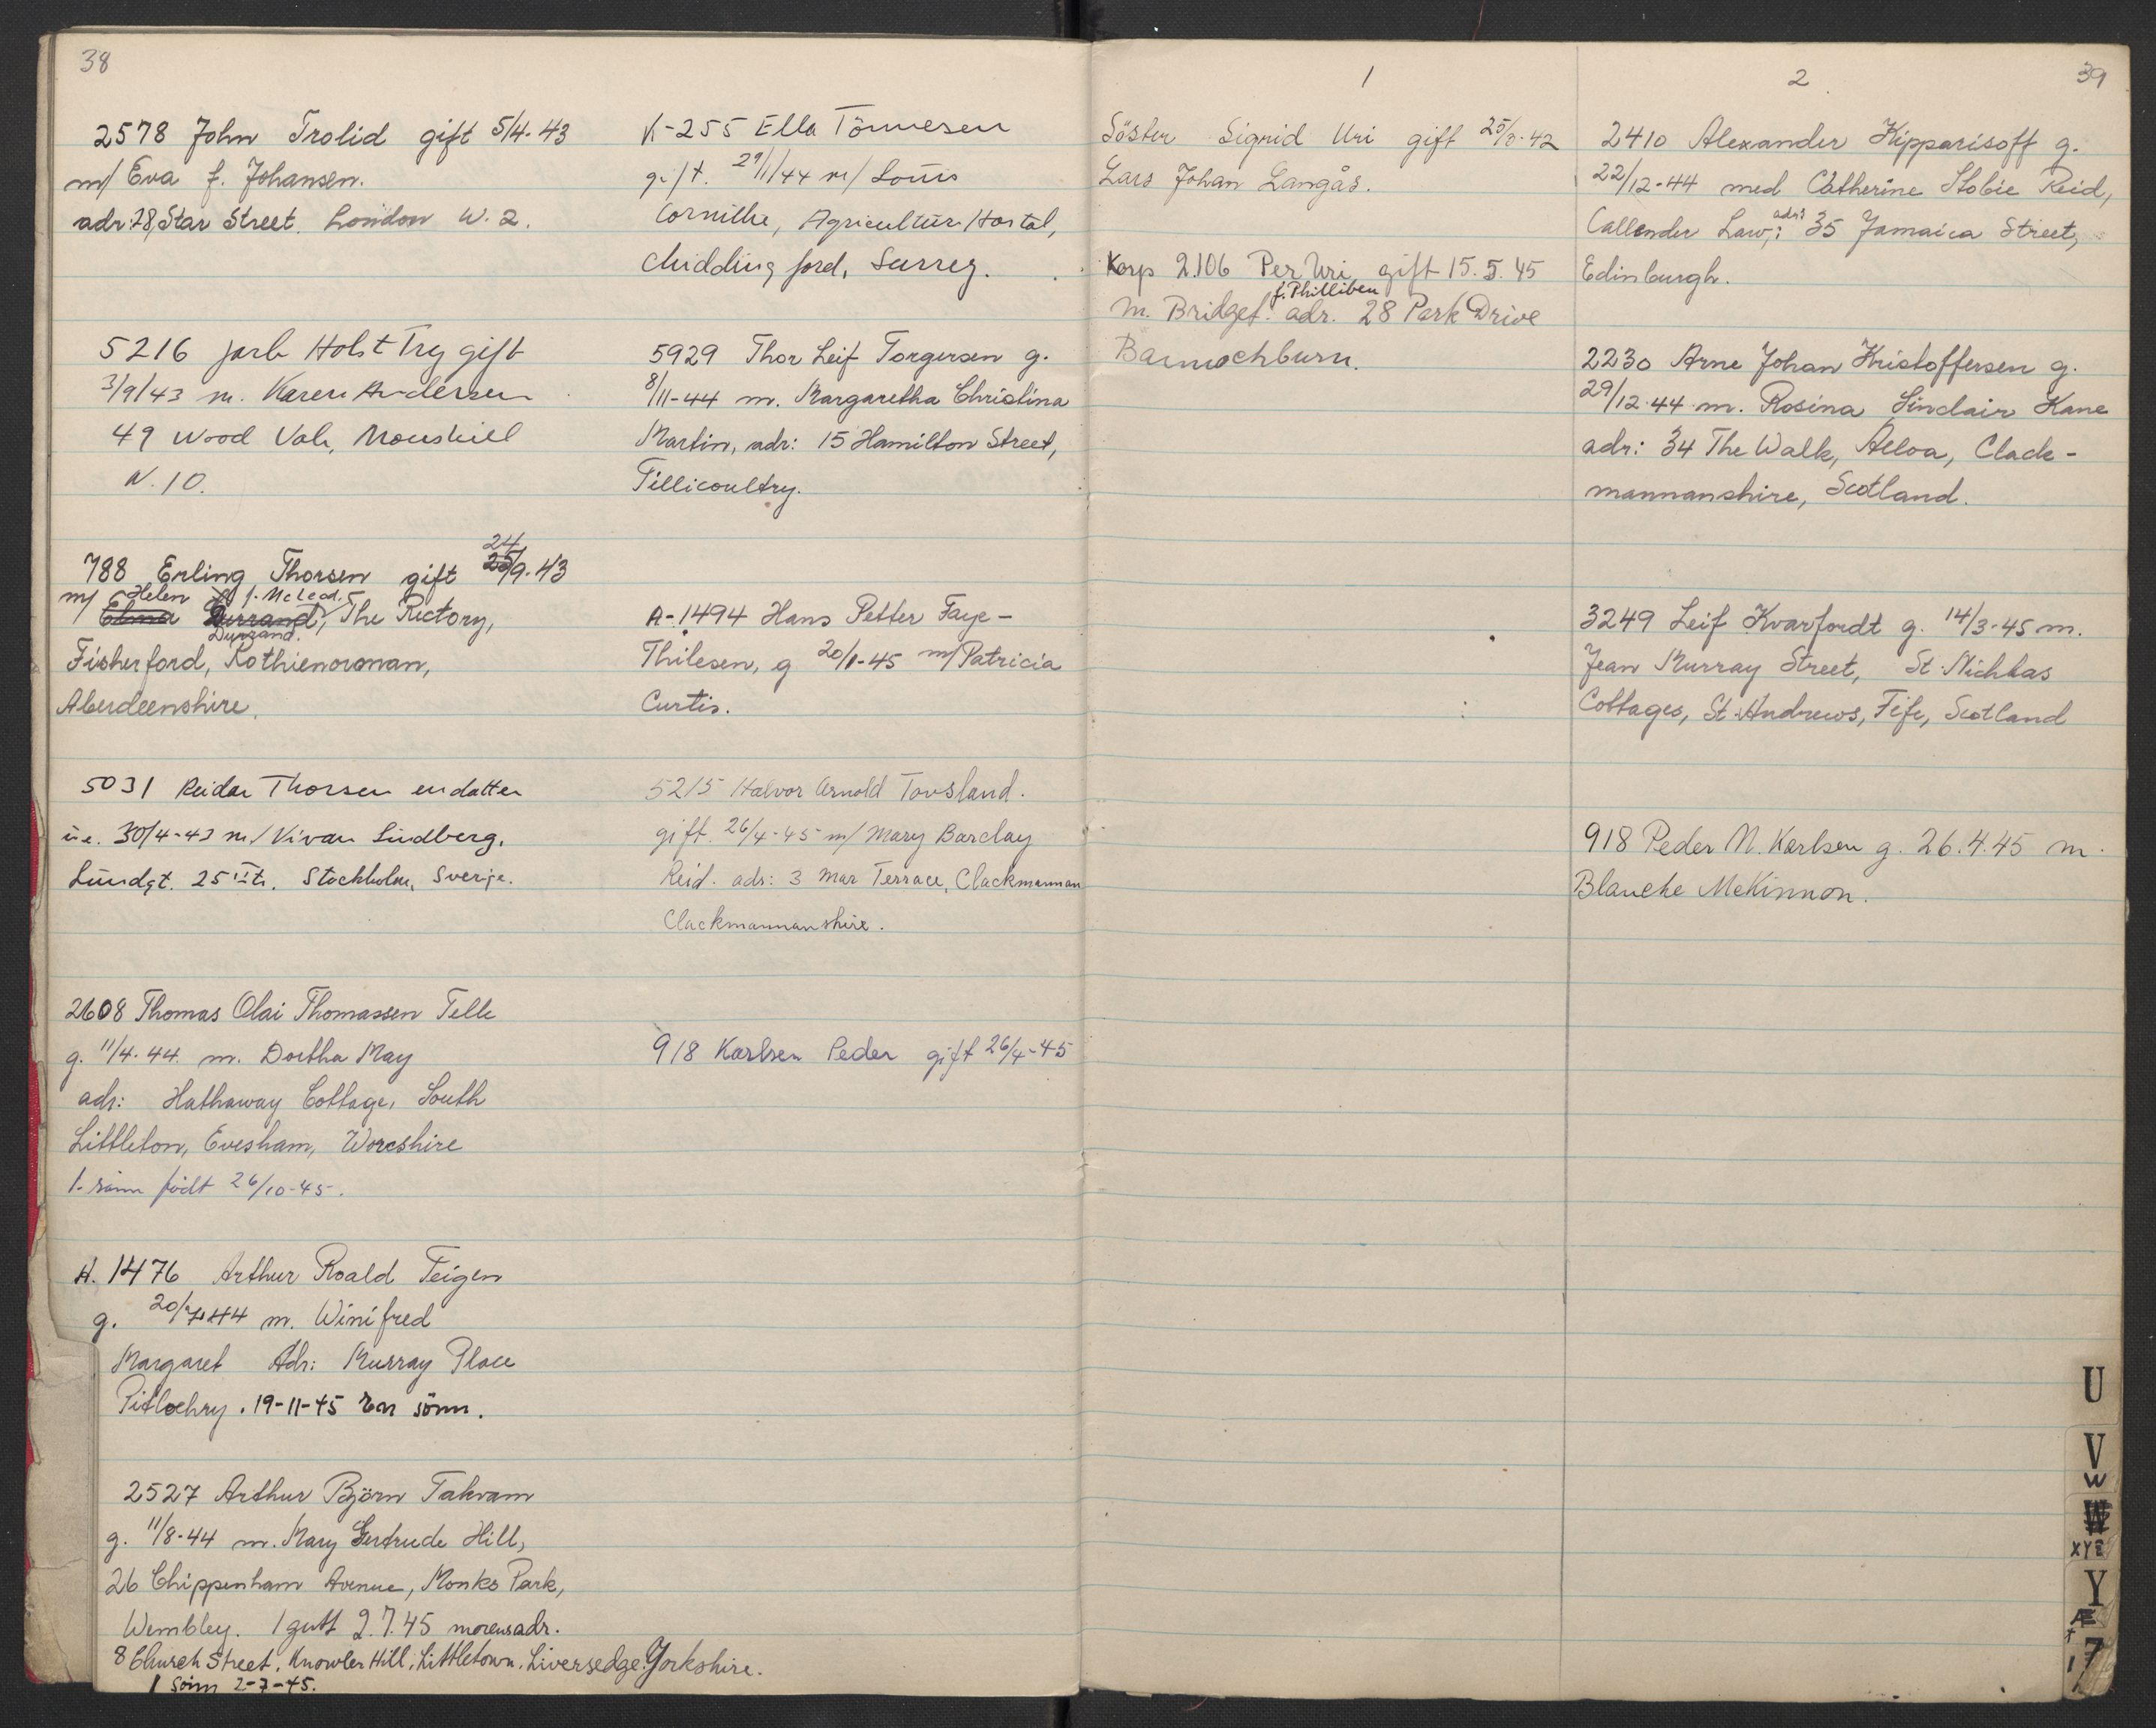 38
2578 John Trolid gift 5/4-43
m/ Eva f. Johansen.
adr: 28, Star Street. London W. 2.
5216 Jarle Holst Try gift
3/9/43 m. Karen Andersen
49 Wood Vale,
N. 10.
24
788 Erling Thorsen gift 25/9-43
Helen f. McLead.
m/ Elma Durrand, The Rectory,
Durrand.
Fisherford, Rothienorman,
Aberdeenshire.
5031 Reidar Thorsen en datter
u.e. 30/4-43 m/ Vivan Lindberg.
Lundgt. 25 Stockholm, Sverje.
2608 Thomas Olai Thomassen Telle
g. 11/4-44. m. Dortha May
adr: Hathaway Cottage, South
Littleton, Evesham, Worcshire
1. sønn født 26/10-45.
A. 1476 Arthur Roald Teigen
g. 20/7-44 m. Winifred
Margaret Adr: Murray Place
Pitlochry. 19-11-45 En sönn.
2527 Arthur Björn Takvam
g. 11/8-44 m. Mary Gertrude Hill,
26 Chippenham Avenue, Monks Park,
Wembley. 1 gutt 2.7.45 morens adr.
8 Church Street, Knowler Hill, Littletown, Liversedge. Yorkshire.
1 sönn 2-7-45.
K-255 Ella Tönnesen
g. /t. 29/1/44 m/ Louis
Agricultur Hostel,
Chiddingford, Surrey.
5929 Thor Leif Torgersen g.
8/11-44 m. Margaretha Christina
Martin, adr: 15 Hamilton Street,
Tillicoultry.
A-1494 Hans Petter Faye-
Thilesen, g 20/1-45 m/ Patricia
Curtis.
5215 Halvor Arnold Tovsland.
gift. 26/4-45 m/ Mary Barclay
Reid. adr: 3 Mar Terrace, Clackmannan
Clackmannanshire.
918 Karlsen Peder gift 26/4-45
1
Söster Sigrid Uri gift 25/8-42
Lars Johan Langås.
Korp 2.106 Per Uri gift 15.5.45
f. Philliben
m. Bridget. adr. 28 Park Drive
Bannochburn.
2
39
2410 Alexander Kipparisoff g.
22/12-44 med Catherine Stobie Reid,
Callender Law, adr: 35 Jamaica Street,
Edinburgh.
2230 Arne Johan Kristoffersen g.
29/12-44 m. Rosina Sinclair Kane
adr: 34 The Walk, Alloa, Clack-
mannanshire, Scotland.
3249 Leif Kvarfordt g. 14/3-45 m.
Jean Murray Street, St. Nichlas
Cottages, St. Andrews, Fife, Scotland
918 Peder N. Karlsen g. 26.4.45 m.
Blanche McKinnon.
U
V
W
W
XYZ
Y
Æ